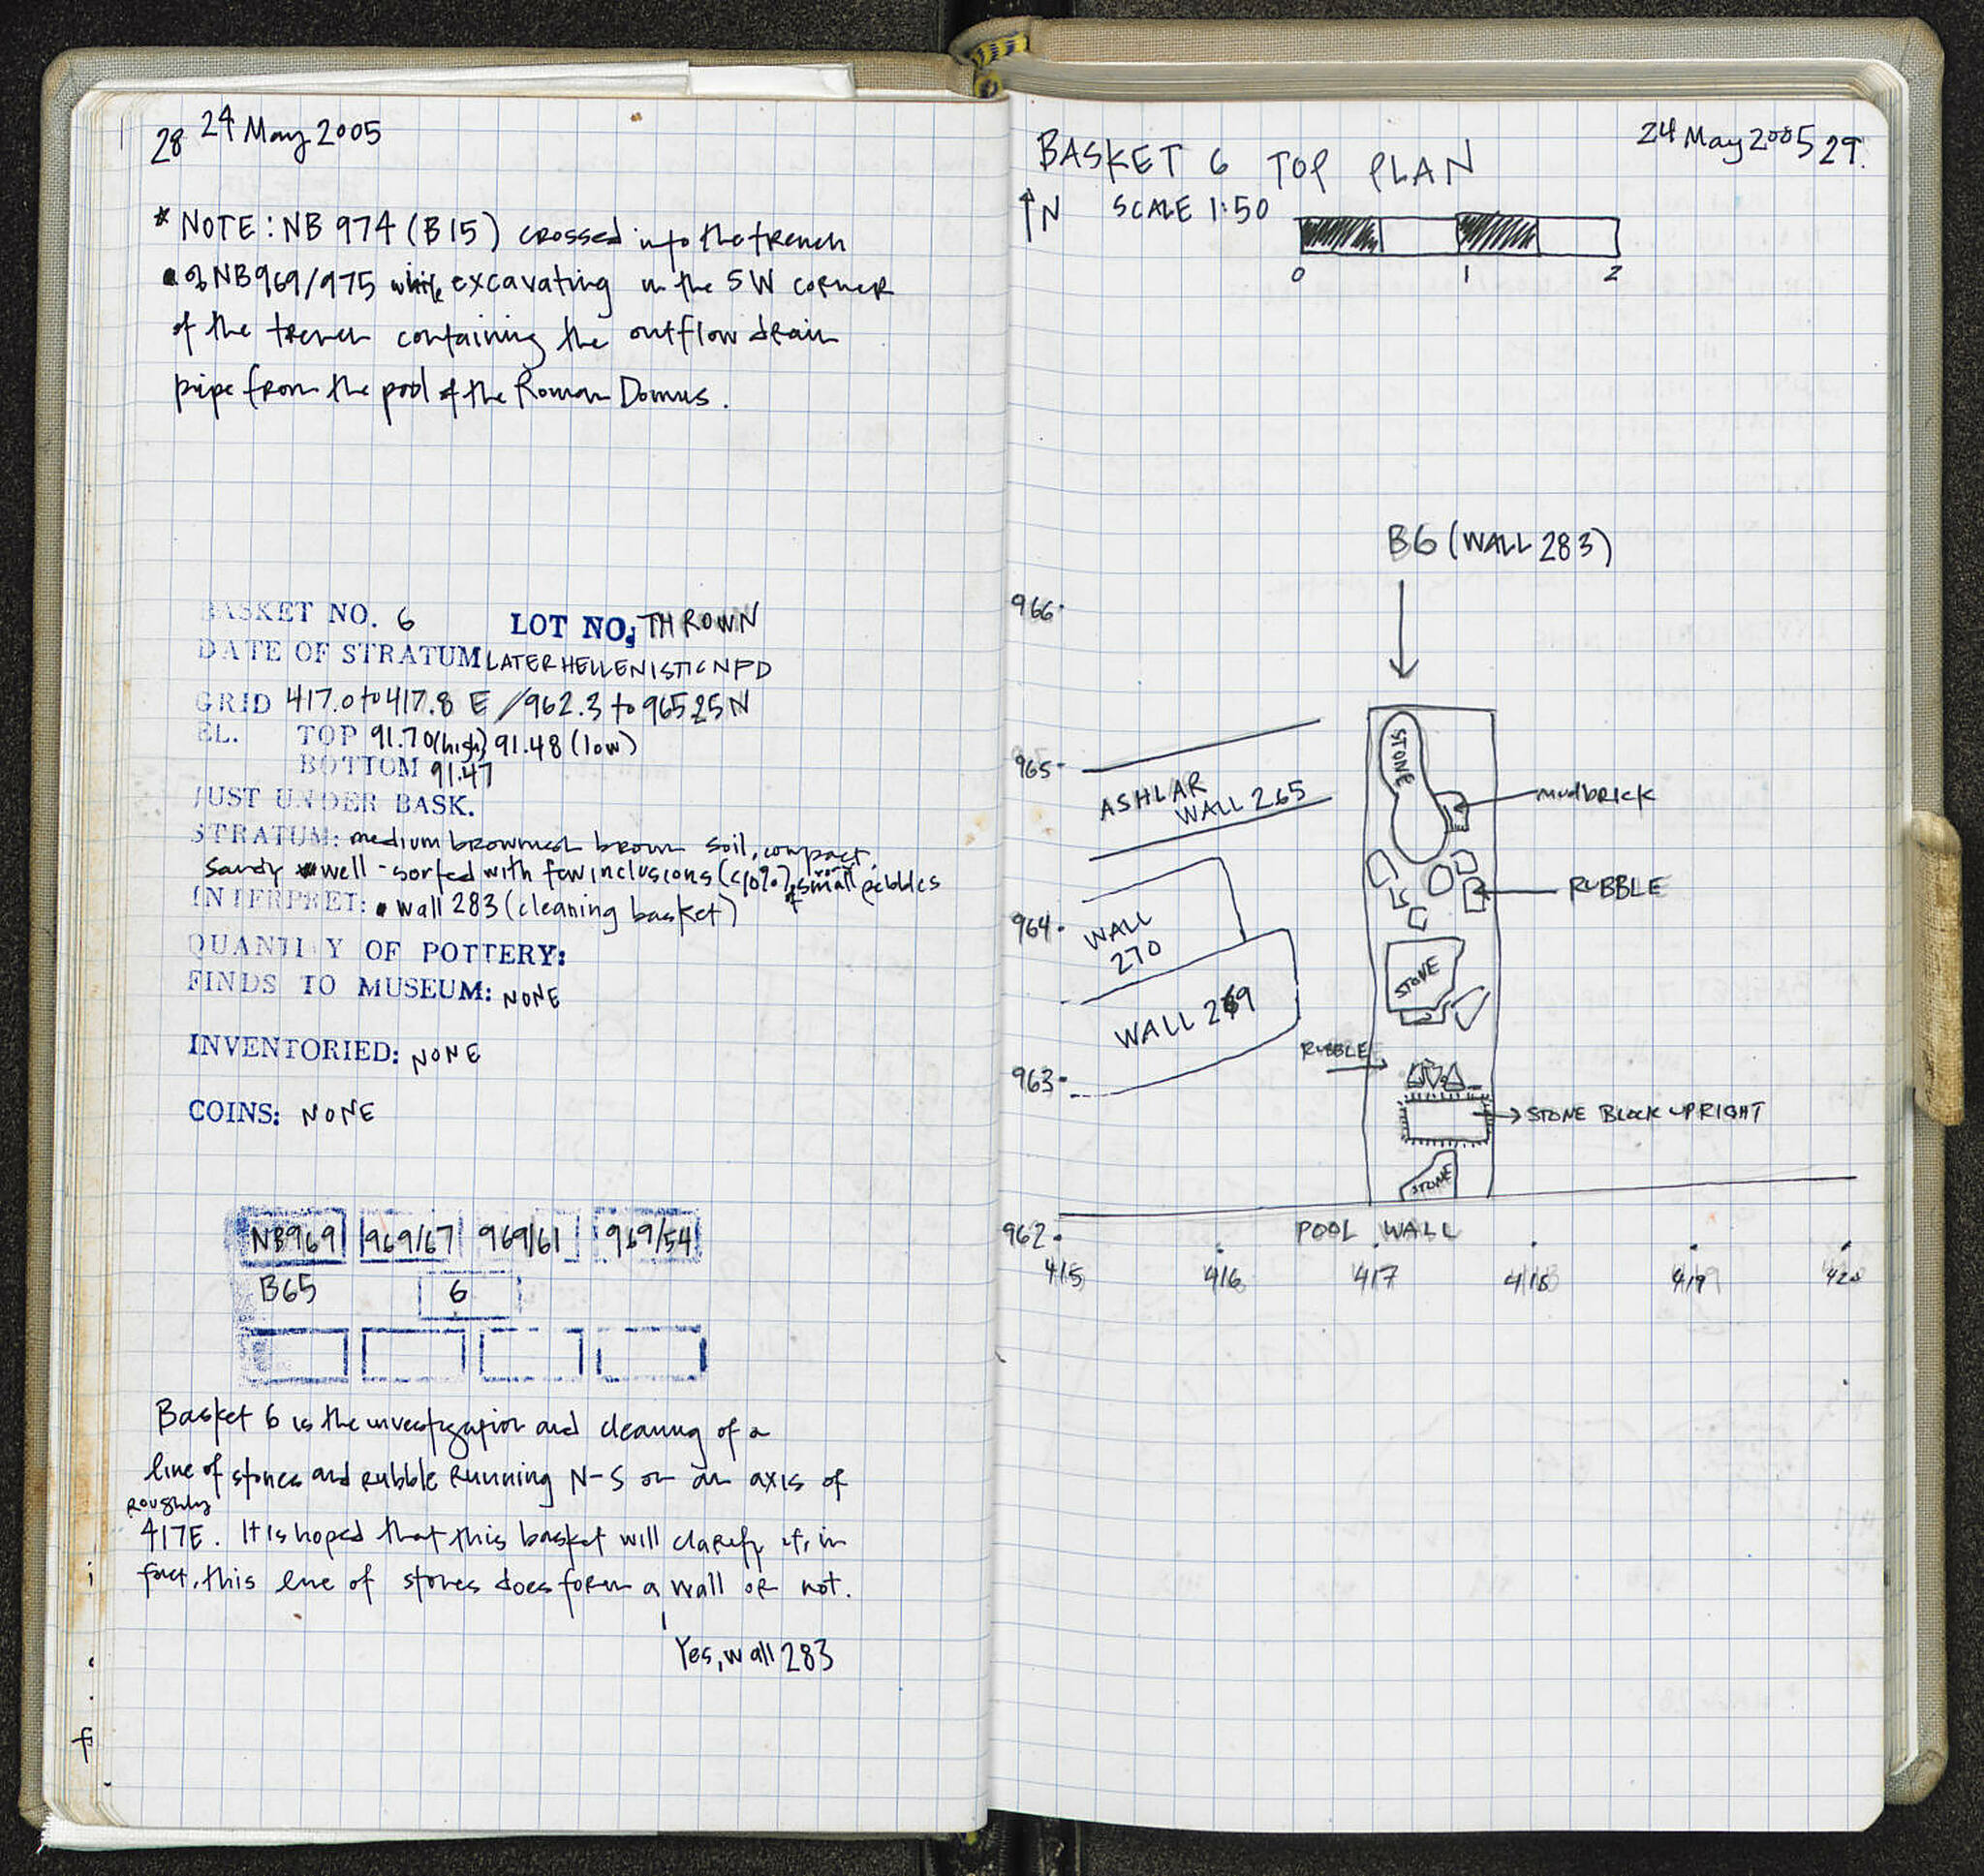 28 24 May 2005
* NOTE: NB 974 (B15) crossed into the trench
of NB969/975 while excavating in the SW corner
of the trench containing the outflow drain
pipe from the pool of the Roman Domus.
BASKET NO. 6 LOT NO. THROWN
DATE OF STRATUM LATER HELLENISTIC NPD
GRID 417.0 to 417.8 E / 962.3 to 965.25 N
EL. TOP 91.70 (high) 91.48 (low)
BOTTOM 91.47
JUST UNDER BASK.
STRATUM: medium brown soil, compact,
sandy well-sorted with few inclusions (<10%) of small pebbles
INTERPRET: wall 283 (cleaning basket)
QUANTITY OF POTTERY:
FINDS TO MUSEUM: NONE
INVENTORIED: NONE
COINS: NONE
NB969 969/67 969/61 969/54
B65 6
Basket 6 is the investigation and cleaning of a
line of stones and rubble running N-S on an axis of
roughly
417E. It is hoped that this basket will clarify if, in
fact, this line of stones does form a wall or not.
Yes, wall 283
24 May 2005 29.
BASKET 6 TOP PLAN
N SCALE 1:50
0 1 2
B6 (WALL 283)
966
STONE
965
ASHLAR
WALL 265
mudbrick
RUBBLE
964
WALL
270
STONE
WALL 269
RUBBLE
963
STONE BLOCK UPRIGHT
STONE
962
POOL WALL
415 416 417 418 419 420